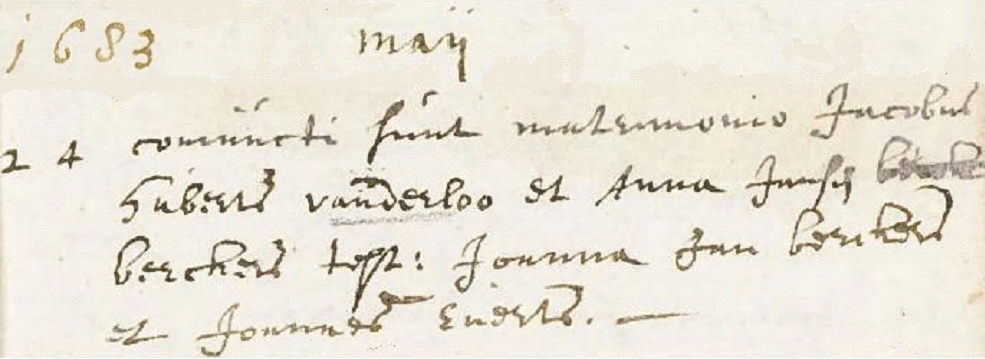 1683 maij
24 coniuncti sunt matrimonio Jacobus
huberts vanderloo et Anna Jansen
berckers test: Joanna Jan berckers
et Joannes Euerts.